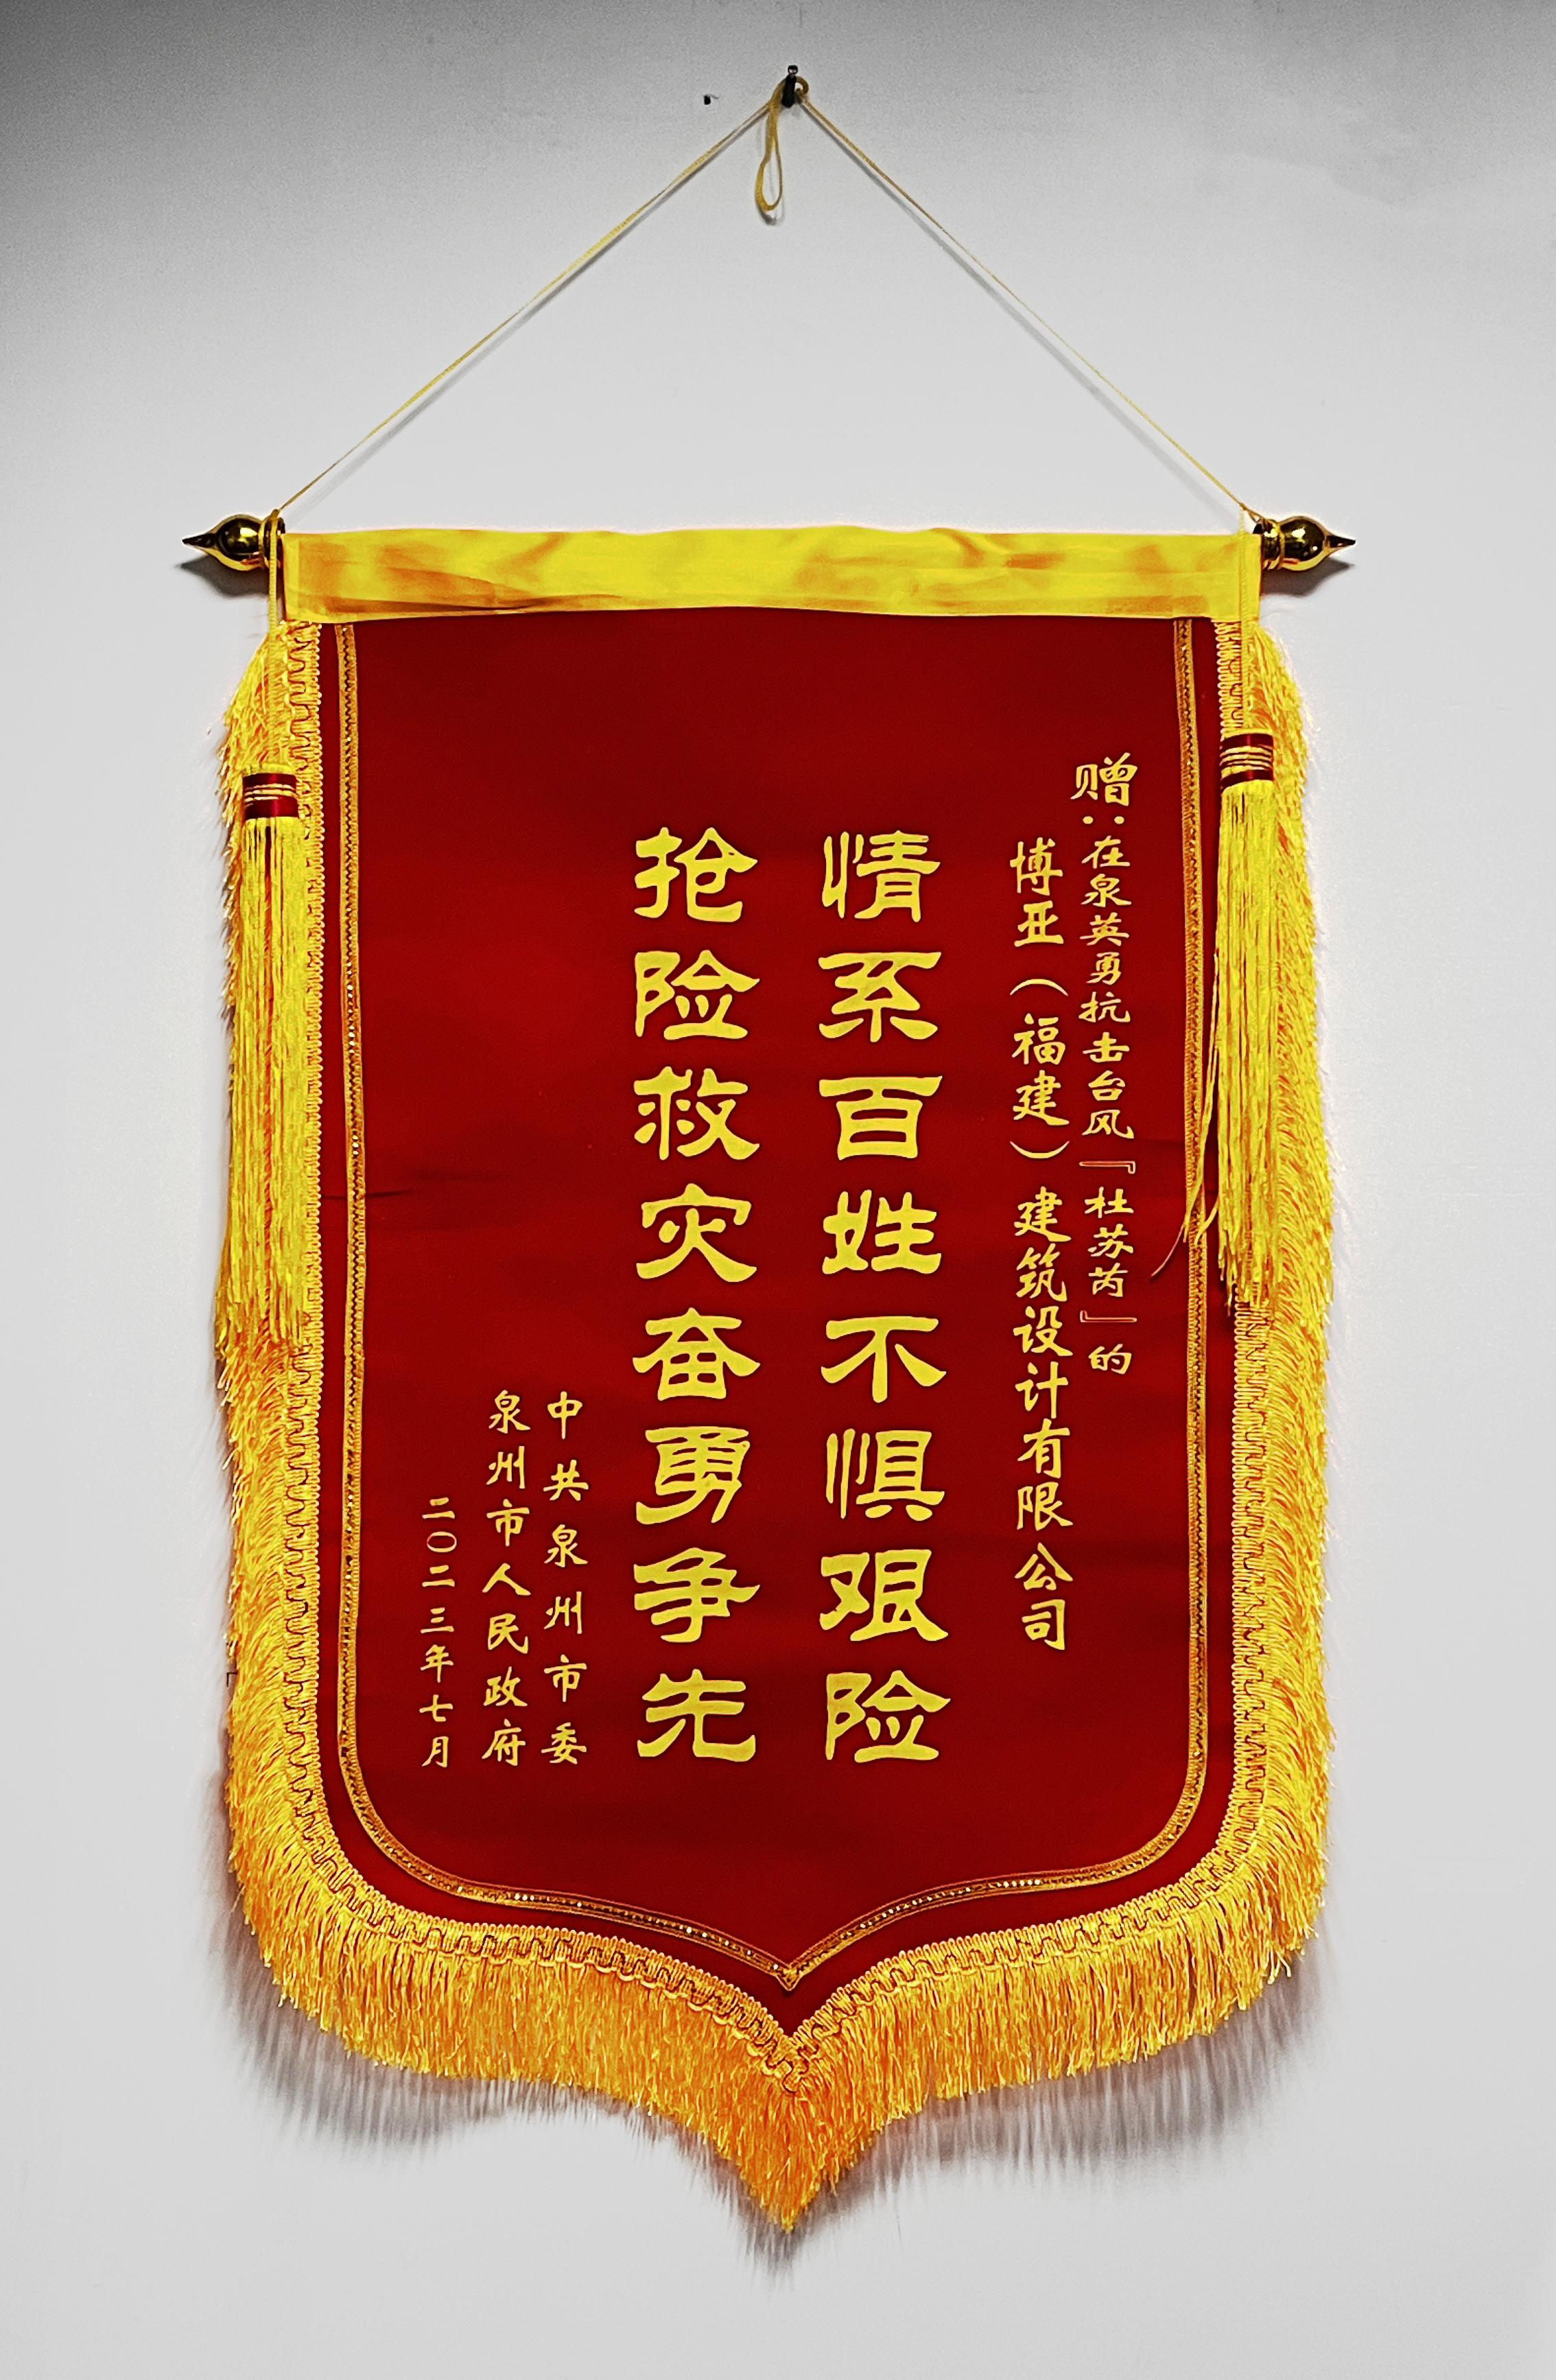 赠：在泉英勇抗击台风『杜苏芮』的
博亚（福建）建筑设计有限公司
情系百姓不惧艰险
抢险救灾奋勇争先
中共泉州市委
泉州市人民政府
二〇二三年七月